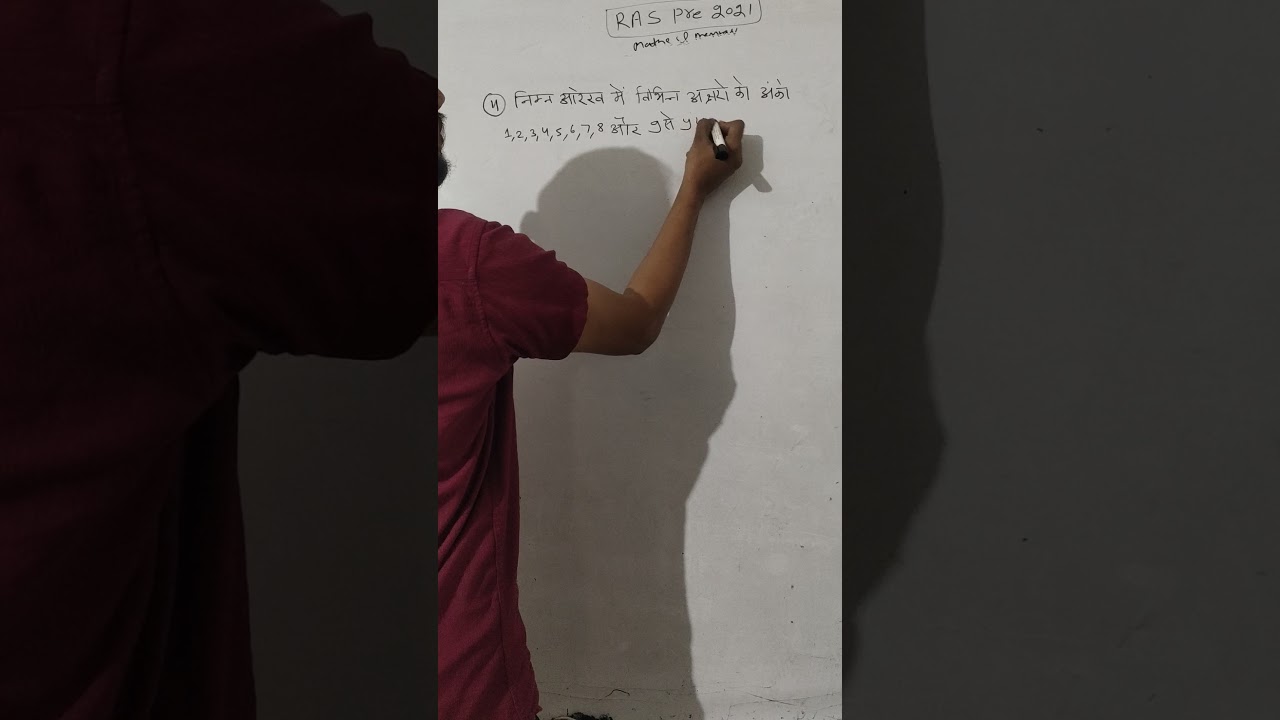 RAS Pre 2021
Maths &
④ निम्न आरेख में विभिन्न अक्षरो को अंको
1,2,3,4,5,6,7,8 और 9 से